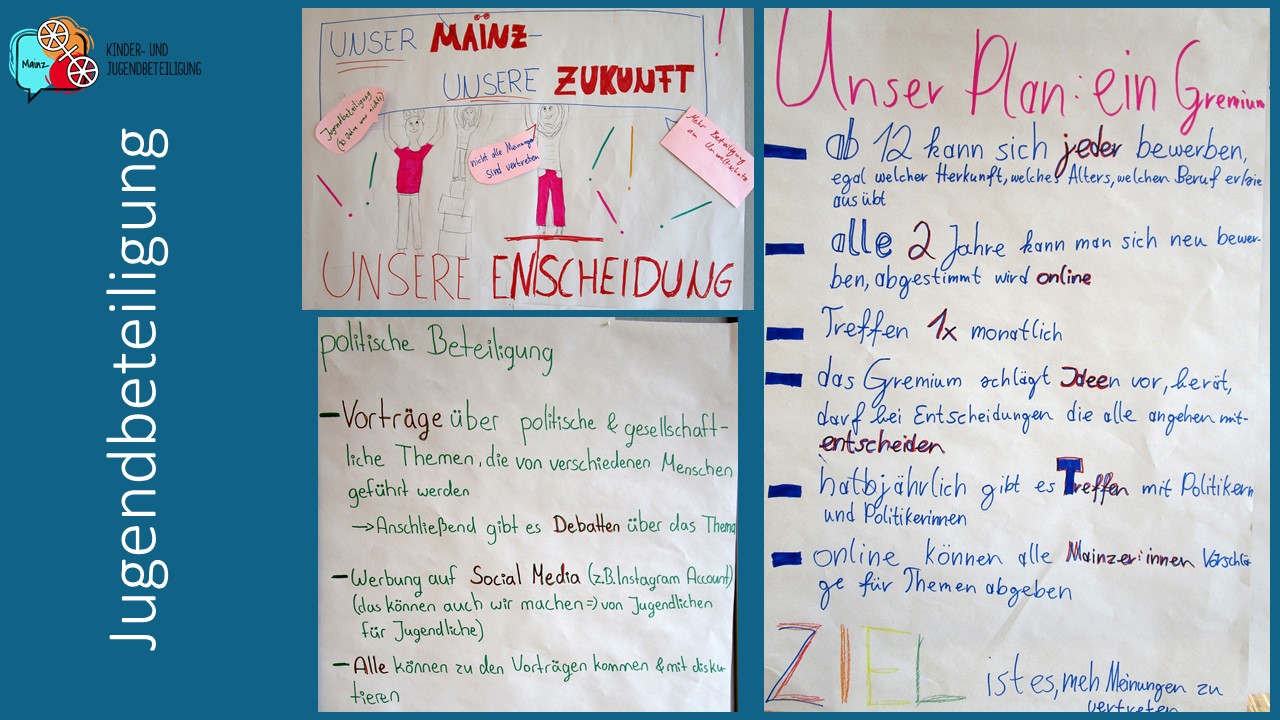 Mainz
KINDER- UND
JUGENDBETEILIGUNG
Jugendbeteiligung
UNSER MAINZ-
UNSERE ZUKUNFT
!
Jugendbeteiligung
nicht alle Meinungen
sind vertreten
Mehr Beteiligung
am
Umweltschutz
UNSERE ENTSCHEIDUNG
politische Beteiligung
- Vorträge über politische & gesellschaft-
liche Themen, die von verschiedenen Menschen
geführt werden
→ Anschließend gibt es Debatten über das Thema
- Werbung auf Social Media (z.B. Instagram Account)
(das können auch wir machen => von Jugendlichen
für Jugendliche)
- Alle können zu den Vorträgen kommen & mit disku-
tieren
Unser Plan: ein Gremium
- ab 12 kann sich jeder bewerben,
egal welcher Herkunft, welches Alters, welchen Beruf er/sie
ausübt
- alle 2 Jahre kann man sich neu bewer-
ben, abgestimmt wird online
- Treffen 1x monatlich
- das Gremium schlägt Ideen vor, berät,
darf bei Entscheidungen die alle angehen mit-
entscheiden
- halbjährlich gibt es Treffen mit Politikern
und Politikerinnen
- online können alle Mainzer:innen Vorschlä-
ge für Themen abgeben
ZIEL ist es, meh Meinungen zu
vertreten